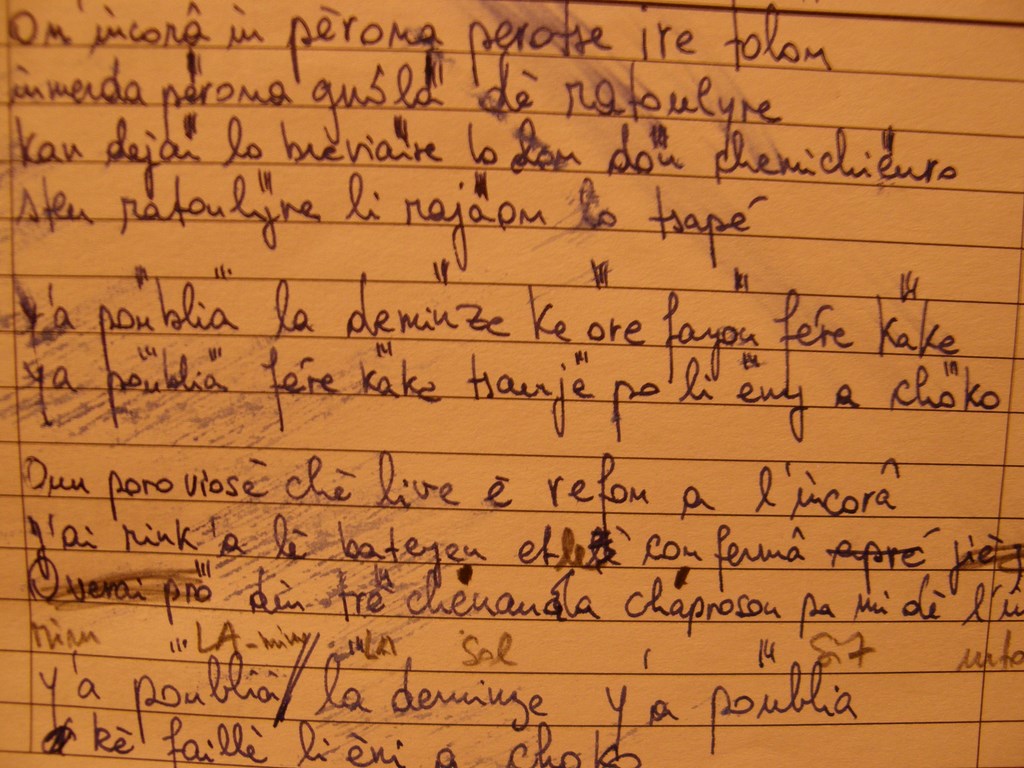 On' incorâ in pèroma perotse ire tolon
inmerda pèroma guôlâ dè ratoulyre
kan dejaï lo brèviaire lo don dou chemichieuro
steu ratoulyre li rajâon lo tsapé
Y'a poublia la deminze ke ore fayou fére kake
Ya poublia fére kake tsanjè po li èny a choko
Onn poro viosè chè live è refon a l'incorâ
n'ai rink'a lè bateyeu et con fermâ apré jiè
Overai prô dèn trè chenanâla chaproson pa mi dè l'în
minu LA-miny LA Sol Si7
Y'a poublia / la deminze y a poublia
kè faillè li èni a choko